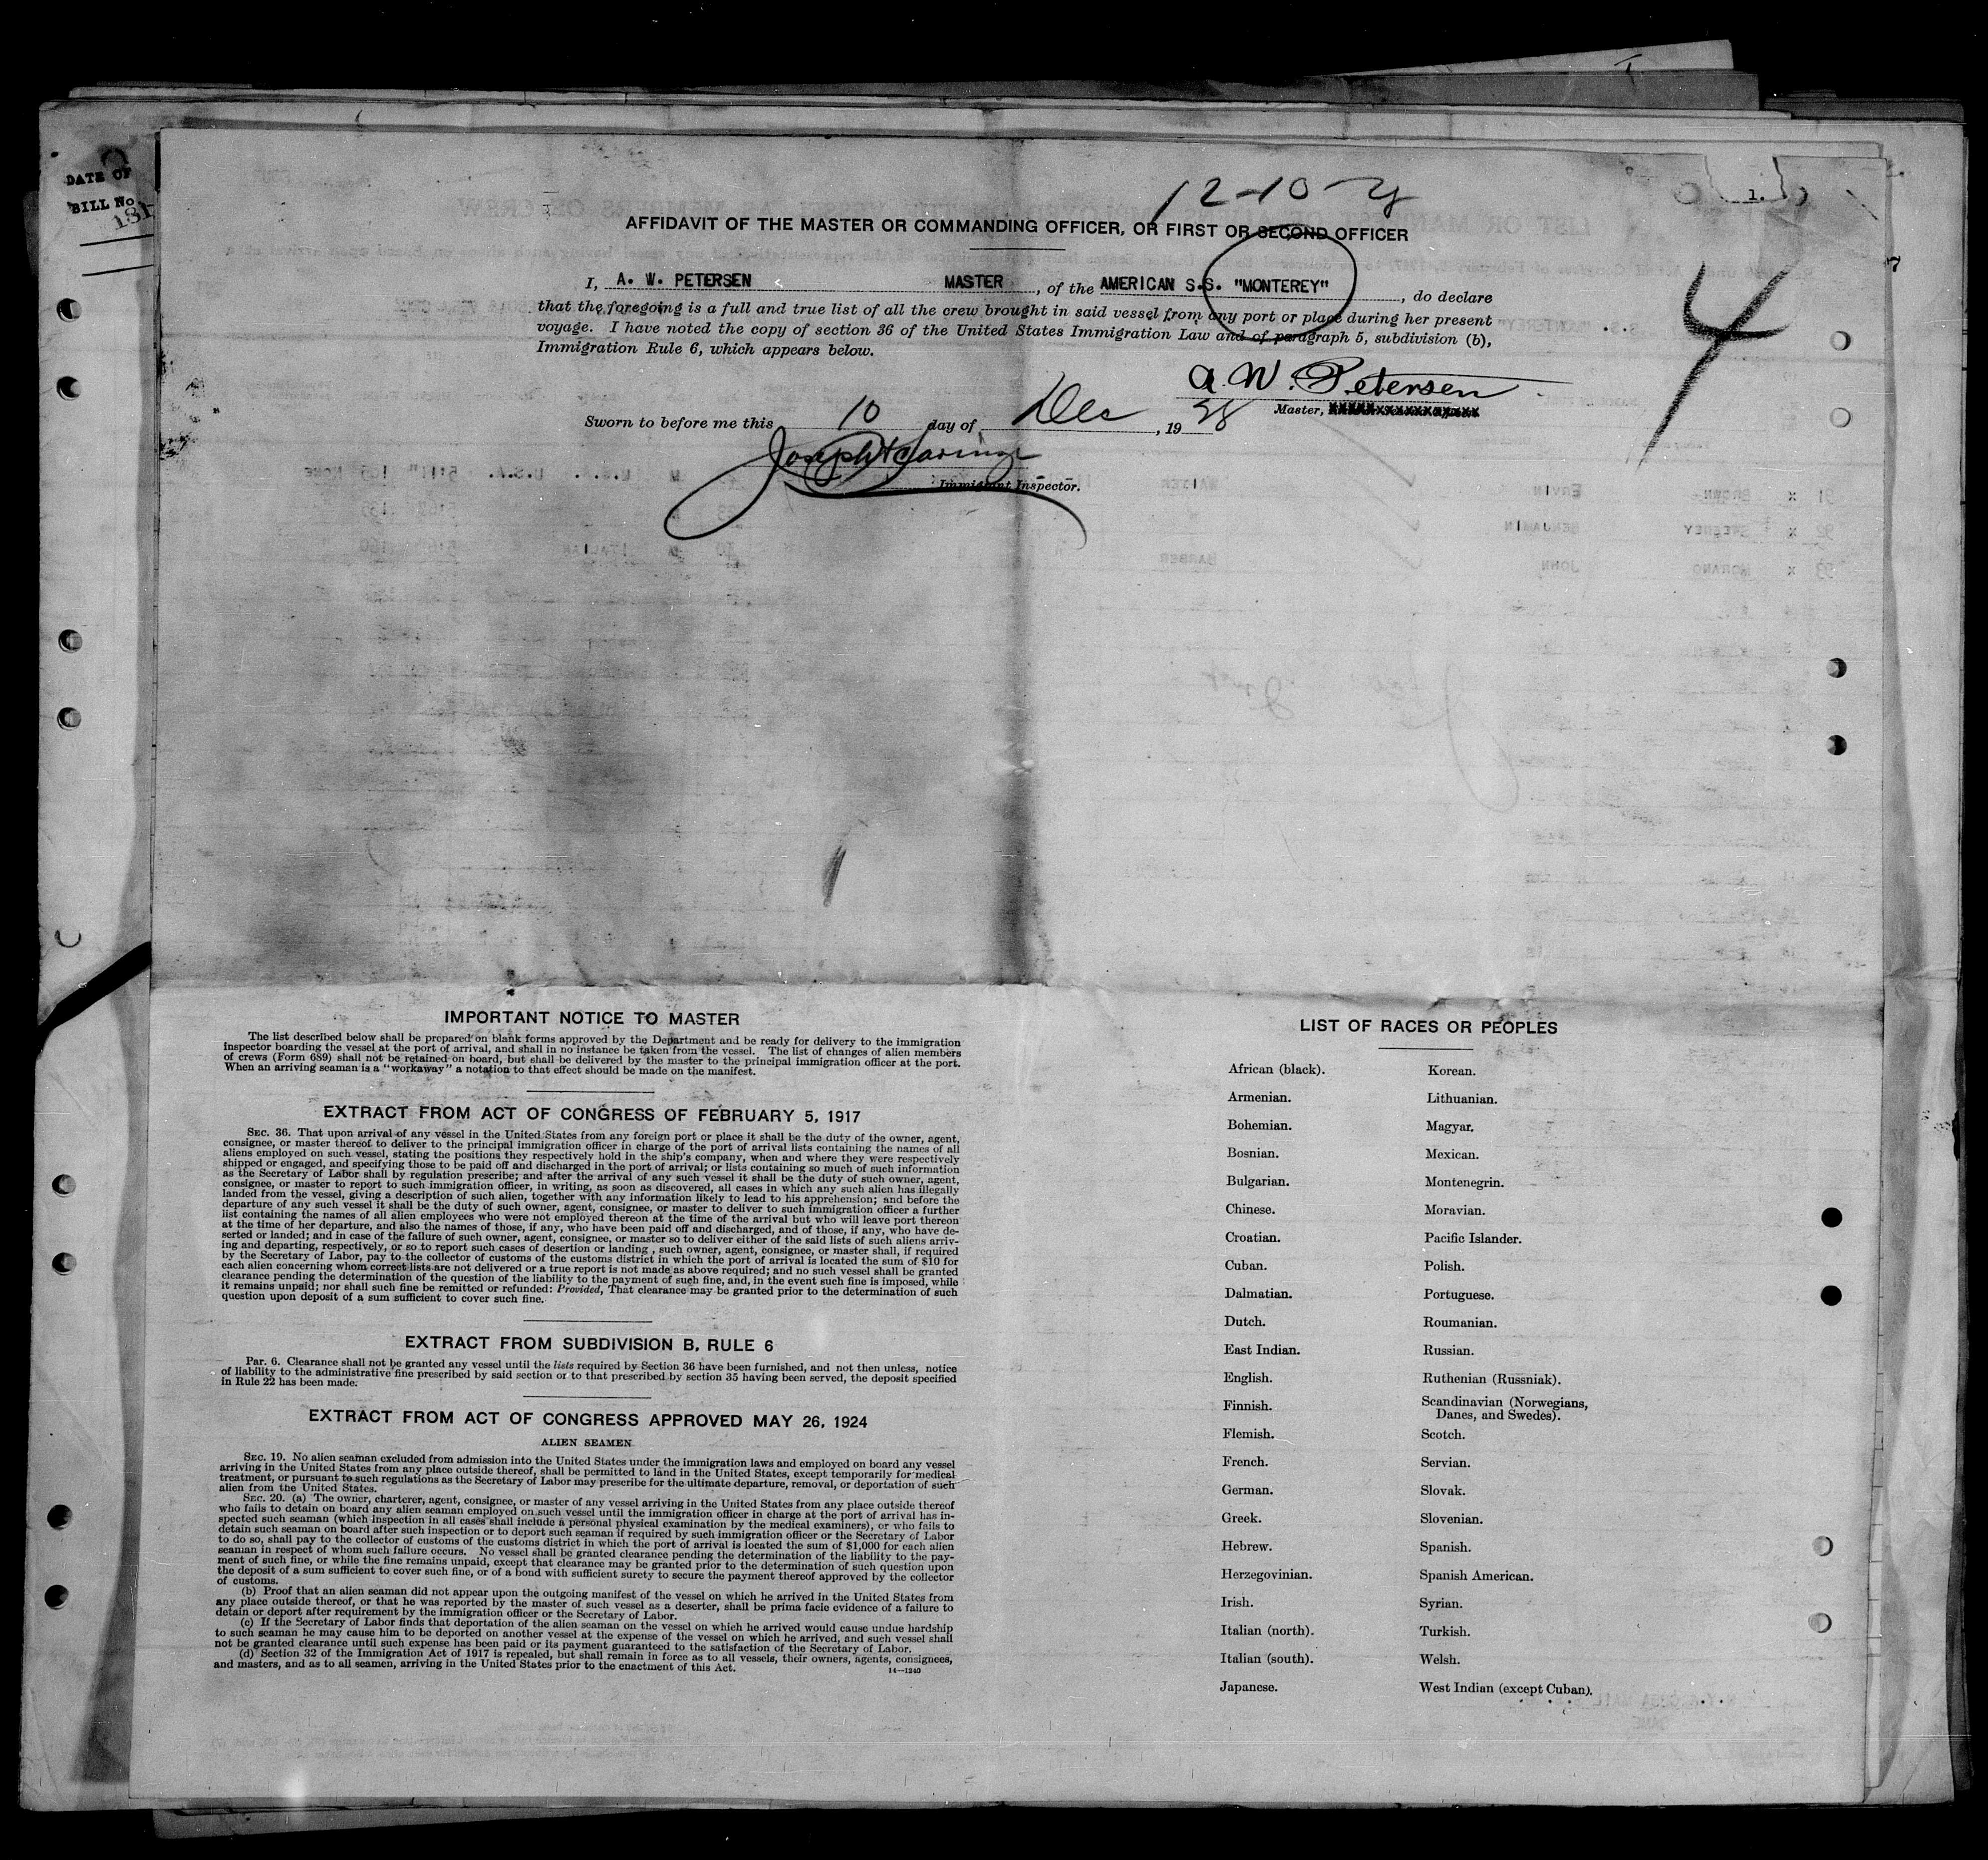 DATE OF
BILL No
181
12-10-
1.
AFFIDAVIT OF THE MASTER OR COMMANDING OFFICER, OR FIRST OR SECOND OFFICER
I, A. W. PETERSEN MASTER, of the AMERICAN S.S. "MONTEREY", do declare
that the foregoing is a full and true list of all the crew brought in said vessel from any port or place during her present
voyage. I have noted the copy of section 36 of the United States Immigration Law and of paragraph 5, subdivision (b),
Immigration Rule 6, which appears below.
4
A. W. Petersen
Master,
Sworn to before me this 10 day of Dec, 1938
Joseph
Immigrant Inspector.
IMPORTANT NOTICE TO MASTER
The list described below shall be prepared on blank forms approved by the Department and be ready for delivery to the immigration
inspector boarding the vessel at the port of arrival, and shall in no instance be taken from the vessel. The list of changes of alien members
of crews (Form 689) shall not be retained on board, but shall be delivered by the master to the principal immigration officer at the port.
When an arriving seaman is a "workaway" a notation to that effect should be made on the manifest.
EXTRACT FROM ACT OF CONGRESS OF FEBRUARY 5, 1917
SEC. 36. That upon arrival of any vessel in the United States from any foreign port or place it shall be the duty of the owner, agent,
consignee, or master thereof to deliver to the principal immigration officer in charge of the port of arrival lists containing the names of all
aliens employed on such vessel, stating the positions they respectively hold in the ship's company, when and where they were respectively
shipped or engaged, and specifying those to be paid off and discharged in the port of arrival; or lists containing so much of such information
as the Secretary of Labor shall by regulation prescribe; and after the arrival of any such vessel it shall be the duty of such owner, agent,
consignee, or master to report to such immigration officer, in writing, as soon as discovered, all cases in which any such alien has illegally
landed from the vessel, giving a description of such alien, together with any information likely to lead to his apprehension; and before the
departure of any such vessel it shall be the duty of such owner, agent, consignee, or master to deliver to such immigration officer a further
list containing the names of all alien employees who were not employed thereon at the time of the arrival but who will leave port thereon
at the time of her departure, and also the names of those, if any, who have been paid off and discharged, and of those, if any, who have de-
serted or landed; and in case of the failure of such owner, agent, consignee, or master so to deliver either of the said lists of such aliens arriv-
ing and departing, respectively, or so to report such cases of desertion or landing, such owner, agent, consignee, or master shall, if required
by the Secretary of Labor, pay to the collector of customs of the customs district in which the port of arrival is located the sum of $10 for
each alien concerning whom correct lists are not delivered or a true report is not made as above required; and no such vessel shall be granted
clearance pending the determination of the question of the liability to the payment of such fine, and, in the event such fine is imposed, while
it remains unpaid; nor shall such fine be remitted or refunded: Provided, That clearance may be granted prior to the determination of such
question upon deposit of a sum sufficient to cover such fine.
EXTRACT FROM SUBDIVISION B, RULE 6
Par. 6. Clearance shall not be granted any vessel until the lists required by Section 36 have been furnished, and not then unless, notice
of liability to the administrative fine prescribed by said section or to that prescribed by section 35 having been served, the deposit specified
in Rule 22 has been made.
EXTRACT FROM ACT OF CONGRESS APPROVED MAY 26, 1924
ALIEN SEAMEN
SEC. 19. No alien seaman excluded from admission into the United States under the immigration laws and employed on board any vessel
arriving in the United States from any place outside thereof, shall be permitted to land in the United States, except temporarily for medical
treatment, or pursuant to such regulations as the Secretary of Labor may prescribe for the ultimate departure, removal, or deportation of such
alien from the United States.
SEC. 20. (a) The owner, charterer, agent, consignee, or master of any vessel arriving in the United States from any place outside thereof
who fails to detain on board any alien seaman employed on such vessel until the immigration officer in charge at the port of arrival has in-
spected such seaman (which inspection in all cases shall include a personal physical examination by the medical examiners), or who fails to
detain such seaman on board after such inspection or to deport such seaman if required by such immigration officer or the Secretary of Labor
to do so, shall pay to the collector of customs of the customs district in which the port of arrival is located the sum of $1,000 for each alien
seaman in respect of whom such failure occurs. No vessel shall be granted clearance pending the determination of the liability to the pay-
ment of such fine, or while the fine remains unpaid, except that clearance may be granted prior to the determination of such question upon
the deposit of a sum sufficient to cover such fine, or of a bond with sufficient surety to secure the payment thereof approved by the collector
of customs.
(b) Proof that an alien seaman did not appear upon the outgoing manifest of the vessel on which he arrived in the United States from
any place outside thereof, or that he was reported by the master of such vessel as a deserter, shall be prima facie evidence of a failure to
detain or deport after requirement by the immigration officer or the Secretary of Labor.
(c) If the Secretary of Labor finds that deportation of the alien seaman on the vessel on which he arrived would cause undue hardship
to such seaman he may cause him to be deported on another vessel at the expense of the vessel on which he arrived, and such vessel shall
not be granted clearance until such expense has been paid or its payment guaranteed to the satisfaction of the Secretary of Labor.
(d) Section 32 of the Immigration Act of 1917 is repealed, but shall remain in force as to all vessels, their owners, agents, consignees,
and masters, and as to all seamen, arriving in the United States prior to the enactment of this Act.
14—1240
LIST OF RACES OR PEOPLES
African (black). Korean.
Armenian. Lithuanian.
Bohemian. Magyar.
Bosnian. Mexican.
Bulgarian. Montenegrin.
Chinese. Moravian.
Croatian. Pacific Islander.
Cuban. Polish.
Dalmatian. Portuguese.
Dutch. Roumanian.
East Indian. Russian.
English. Ruthenian (Russniak).
Finnish. Scandinavian (Norwegians,
Danes, and Swedes).
Flemish. Scotch.
French. Servian.
German. Slovak.
Greek. Slovenian.
Hebrew. Spanish.
Herzegovinian. Spanish American.
Irish. Syrian.
Italian (north). Turkish.
Italian (south). Welsh.
Japanese. West Indian (except Cuban).